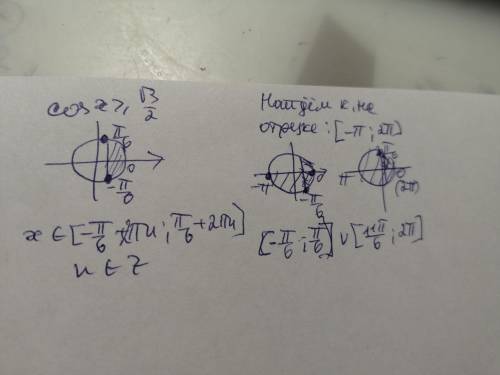 cos x ≥ √3/2
π/6
0
-π/6
x ∈ [-π/6 + 2πn ; π/6 + 2πn]
n ∈ Z
Найдём к. на
отрезке: [-π ; 2π]
-π
0
-π/6
π
π/6
0
(2π)
[-π/6 ; π/6] ∪ [11π/6 ; 2π]